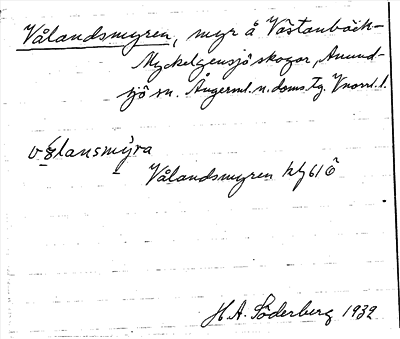 Vålandsmyren, myr å Västanbäck-
Myckelgensjö skogar, Anund-
sjö sn. Ångerml. n. doms. tg. Vnorrl. l.
Vålandsmyren
H. A. Söderberg 1939